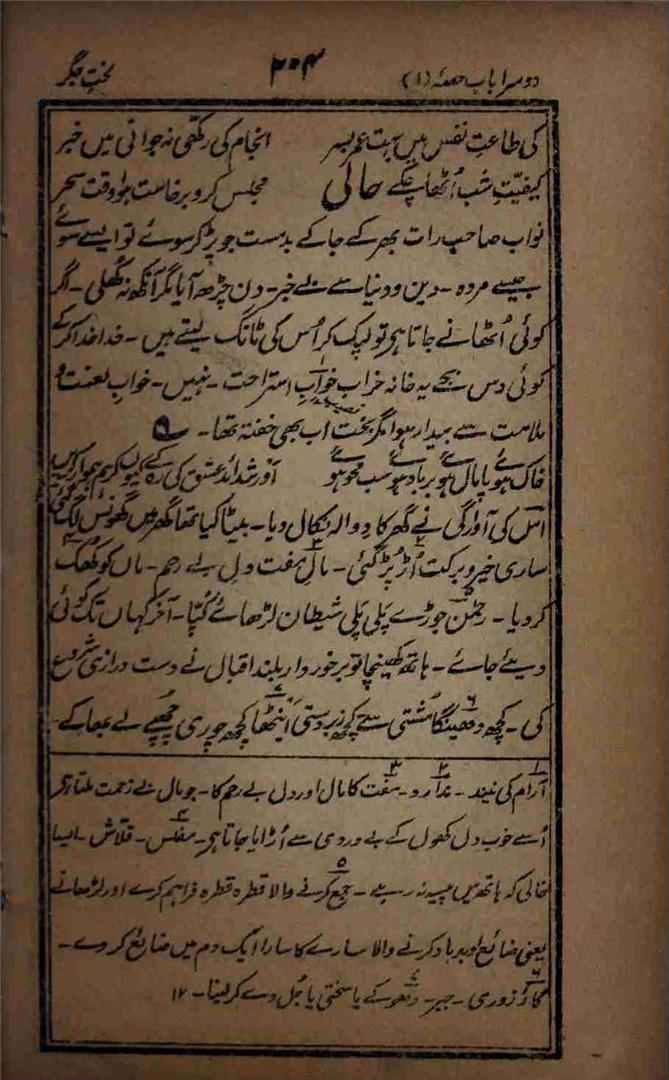 دوسرا باب حصہ (۱) ۲۰۴ لختِ جگر
کی طاعتِ نفس میں بہت عمر بسر انجام کی رکھی نہ جوانی میں خبر
کیفیتِ شب اُٹھا چکے حالی مجلس کرو برخاست ہوا وقت سحر
نواب صاحب رات بھر کے جاگے بدمست جو پڑ کر سوئے تو ایسے سوئے
جیسے مردہ ۔ دین و دنیا سے بے خبر ۔ دن چڑھ آیا مگر آنکھ نہ کھلی ۔ اگر
کوئی اُٹھانے جاتا ہے تو لپک کر اُس کی ٹانگ لیتے ہیں ۔ خدا خدا کر کے
کوئی دس بجے یہ خانہ خراب خوابِ استراحت ۔ نہیں ۔ خوابِ لعنت و
ملامت سے بیدار ہوا مگر بخت اب بھی خفتہ تھا ۔ ؎
خاک ہو گئے پامال ہو گئے برباد ہو گئے سب محو ہو گئے اور شدائد عشق کی رہ کے کیونکر ہم ہموار کریں
اس کی آوارگی نے گھر کا دوالہ نکال دیا ۔ بیٹا کیا تھا گھر میں گھونس لگ گئی
ساری خیر و برکت اُڑ پُڑ گئی ۔ مالِ مفت دلِ بے رحم ۔ ماں کو کُھک
کر دیا ۔ رحمٰن جوڑے پلی پلی شیطان لڑھائے کُپّا ۔ آخر کہاں تک کوئی
دیئے جائے ۔ ہاتھ کھینچا تو برخوردار بلند اقبال نے دست درازی شروع
کی ۔ کچھ دھینگا مُشتی سے کچھ زبردستی اینٹھا کچھ چوری چُھپے لے بھاگے ۔
۱ آرام کی نیند ۔ ۲ ندارد ۔ ۳ مفت کا مال اور دل بے رحم کا ۔ جو مال بے زحمت ملتا ہے
اُسے خوب دل کھول کے بے دردی سے اُڑایا جاتا ہے ۔ ۴ مفلس ۔ قلاش ۔ ایسا
خالی کہ ہاتھ میں پیسہ نہ رہے ۔ ۵ جمع کرنے والا قطرہ قطرہ فراہم کرے اور لڑھانے
یعنی ضائع اور برباد کرنے والا سارے کا سارا ایک دم میں ضائع کر دے ۔
۶ زوری ۔ جبر ۔ دھوکے یا سختی یا جُل دے کر لینا ۔ ۱۲